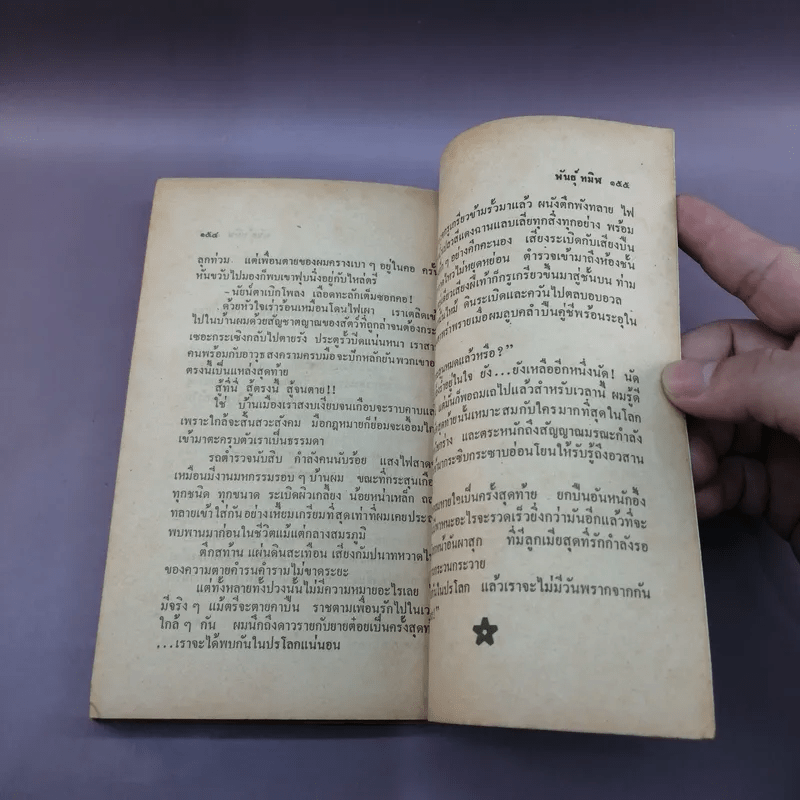 ๑๕๔
ลูกท่วม แต่เพื่อนตายของผมครางเบา ๆ อยู่ในคอ ครั้น
หันขวับไปมองก็พบเขาฟุบนิ่งอยู่กับไหล่ตรี
-นัยน์ตาเบิกโพลง เลือดทะลักเต็มซอกคอ!
ด้วยหัวใจเร่าร้อนเหมือนโดนไฟเผา เราเตลิดเ
ไปในบ้านผมด้วยสัญชาตญาณของสัตว์ที่ถูกล่าจนต้องกระ
เซอะกระเซิงกลับไปตายรัง ประตูรั้วปิดแน่นหนา เราสา
คนพร้อมกับอาวุธสงครามครบมือจะปักหลักยันพวกเขาอ
ตรงนี้เป็นแหล่งสุดท้าย
สู้ที่นี่ สู้ตรงนี้ สู้จนตาย!!
ใช่ บ้านเมืองเราสงบเงียบจนเกือบจะราบคาบแล้
เพราะใกล้จะสิ้นสวะสังคม มือกฎหมายก็ย่อมจะเอื้อมไก
เข้ามาตะครุบตัวเราเป็นธรรมดา
รถตำรวจนับสิบ กำลังคนนับร้อย แสงไฟสาด
เหมือนมีงานมหกรรมรอบ ๆ บ้านผม ขณะที่กระสุนเกือ
ทุกชนิด ทุกขนาด ระเบิดผิวเกลี้ยง น้อยหน่าเหล็ก ถล
ทลายเข้าใส่กันอย่างเหี้ยมเกรียมที่สุดเท่าที่ผมเคยประ
พบพานมาก่อนในชีวิตแม้แต่กลางสมรภูมิ
ตึกสท้าน แผ่นดินสะเทือน เสียงกัมปนาทหวาดไ
ของความตายคำรนคำรามไม่ขาดระยะ
แต่ทั้งหลายทั้งปวงนั้นไม่มีความหมายอะไรเลย
มีจริง ๆ แม้ตรีจะตายคาปืน ราชตามเพื่อนรักไปในเว
ใกล้ ๆ กัน ผมนึกถึงดาวรายกับยายต๋อยเป็นครั้งสุดท้
...เราจะได้พบกันในปรโลกแน่นอน
พันธุ์ ทมิฬ ๑๕๕
กรูเกรียวข้ามรั้วมาแล้ว ผนังตึกพังทลาย ไฟ
ปลวสีแดงฉานแลบเลียทุกสิ่งทุกอย่าง พร้อม
ๆ อย่างคึกคะนอง เสียงระเบิดกับเสียงปืน
ไหวไม่หยุดหย่อน ตำรวจเข้ามาถึงห้องชั้น
เดี๋ยวเสียงฝีเท้าก็กรูเกรียวขึ้นมาสู่ชั้นบน ท่าม
ไหม้ ดินระเบิดและควันไปตลบอบอวล
พร่าพรายเมื่อผมลูบคลำปืนคู่ชีพร้อนระอุใน
สูนหมดแล้วหรือ?”
ราอยู่ในใจ ยัง... ยังเหลืออีกหนึ่งนัด! นัด
แต่มันก็พอถมเถไปแล้วสำหรับเวลานี้ ผมรู้ดี
สุดท้ายนั้นเหมาะสมกับใครมากที่สุดในโลก
ร่าง และตระหนักถึงสัญญาณมรณะกำลัง
มากระซิบกระซาบอ่อนโยนให้รับรู้ถึงอวสาน
มหายใจเป็นครั้งสุดท้าย ยกปืนอันหนักอึ้ง
าหนะอะไรจะรวดเร็วยิ่งกว่ามันอีกแล้วที่จะ
หน้าอันผาสุก ที่มีลูกเมียสุดที่รักกำลังรอ
ระวนกระวาย
ในปรโลก แล้วเราจะไม่มีวันพรากจากกัน